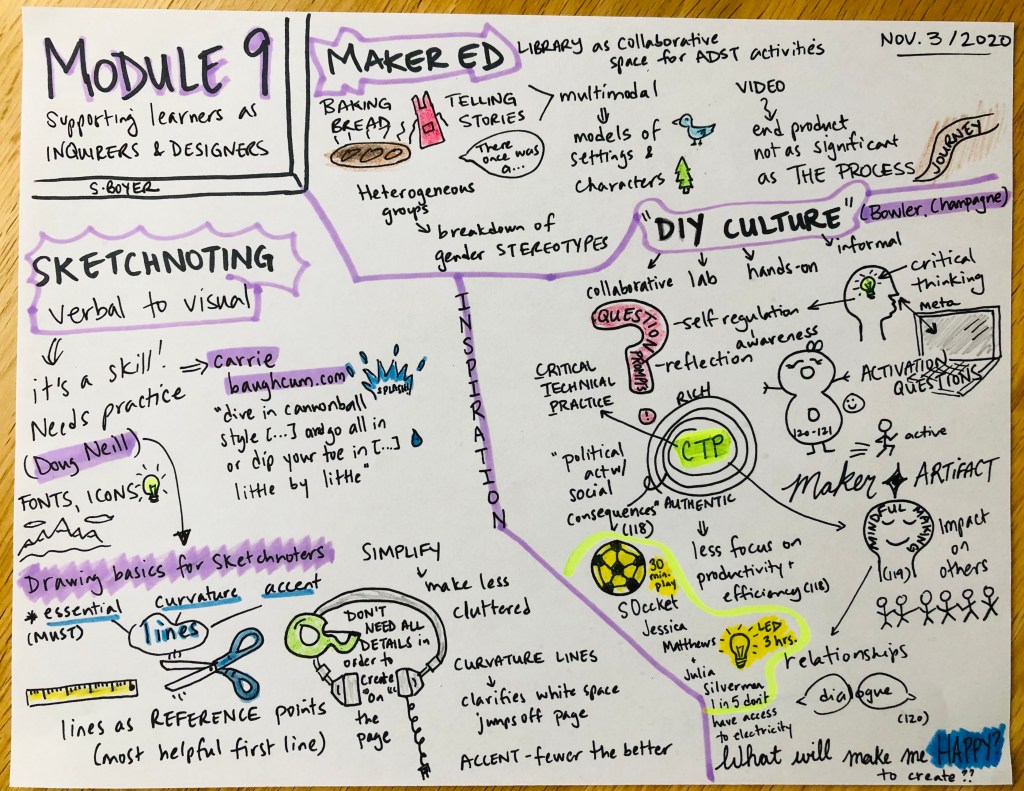 MODULE 9
Supporting learners as
INQUIRERS & DESIGNERS
S. BOYER
NOV. 3/2020
MAKER ED
LIBRARY as collaborative
space for ADST activities
BAKING
BREAD
TELLING
STORIES
There
once was
a...
multimodal
models of
settings &
characters
VIDEO
end product
not as significant
as THE PROCESS
JOURNEY
Heterogeneous
groups
breakdown of
gender STEREOTYPES
"DIY CULTURE"
(Bowler, Champagne)
collaborative
lab
hands-on
informal
critical
thinking
meta
QUESTION
PROMPTS
self regulation
awareness
reflection
ACTIVATION
QUESTIONS
D
120-121
active
CRITICAL
TECHNICAL
PRACTICE
RICH
CTP
AUTHENTIC
"political
act w/
social
consequences"
(118)
less focus on
productivity +
efficiency (118)
Maker ARTIFACT
MINDFUL MAKING
(119)
Impact
on
others
30
min.
play
SOccket
Jessica
Matthews
+
Julia
Silverman
LED
3 hrs.
1 in 5 don't
have access
to electricity
relationships
dialogue
(120)
What will make me HAPPY?
to create??
INSPIRATION
SKETCHNOTING
verbal to visual
it's a skill!
Needs practice
(Doug Neill)
carrie
baughcum.com
SPLASH!
"dive in cannonball
style [...] and go all in
or dip your toe in [...]
little by little"
FONTS, ICONS,
AAAA
Drawing basics for sketchnoters
* essential
(MUST)
curvature
accent
lines
lines as REFERENCE points
(most helpful first line)
SIMPLIFY
make less
cluttered
DON'T
NEED ALL
DETAILS in
order to
create
"on"
the
page
CURVATURE LINES
clarifies white space
jumps off page
ACCENT - fewer the better